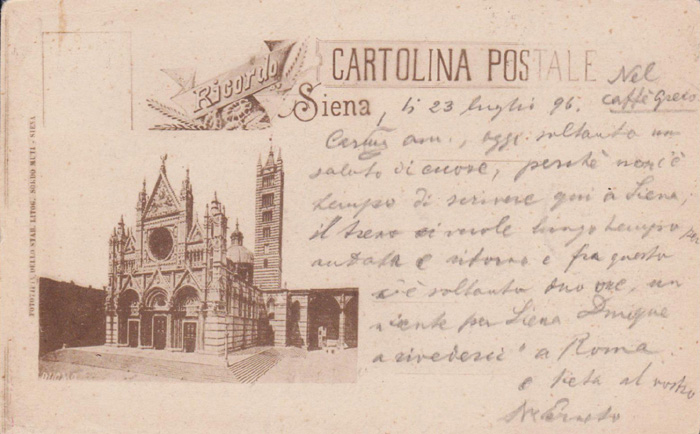 Ricordo
CARTOLINA POSTALE
Siena, li 23 luglio 96.
Nel
caffè Greco
oggi soltanto un
saluto di cuore, perchè non c'è
tempo di scrivere qui a Siena,
il treno ci vuole lungo tempo
andata e ritorno e fra questo
c'è soltanto due ore, un
niente per Siena Dunque
a rivederci a Roma
e
al vostro
STAB. LITOG.
SIENA